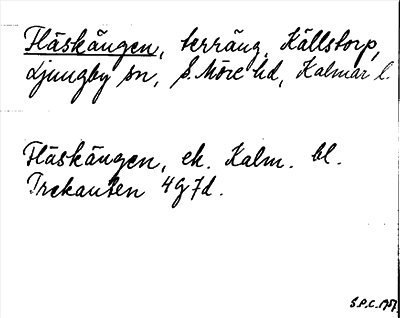 Fläskängen, terräng, Källstorp,
Ljungby sn, S. Möre hd, Kalmar l.
Fläskängen, ek. Kalm. bl.
Trekanten 4G7d.
S.P.C. 1957